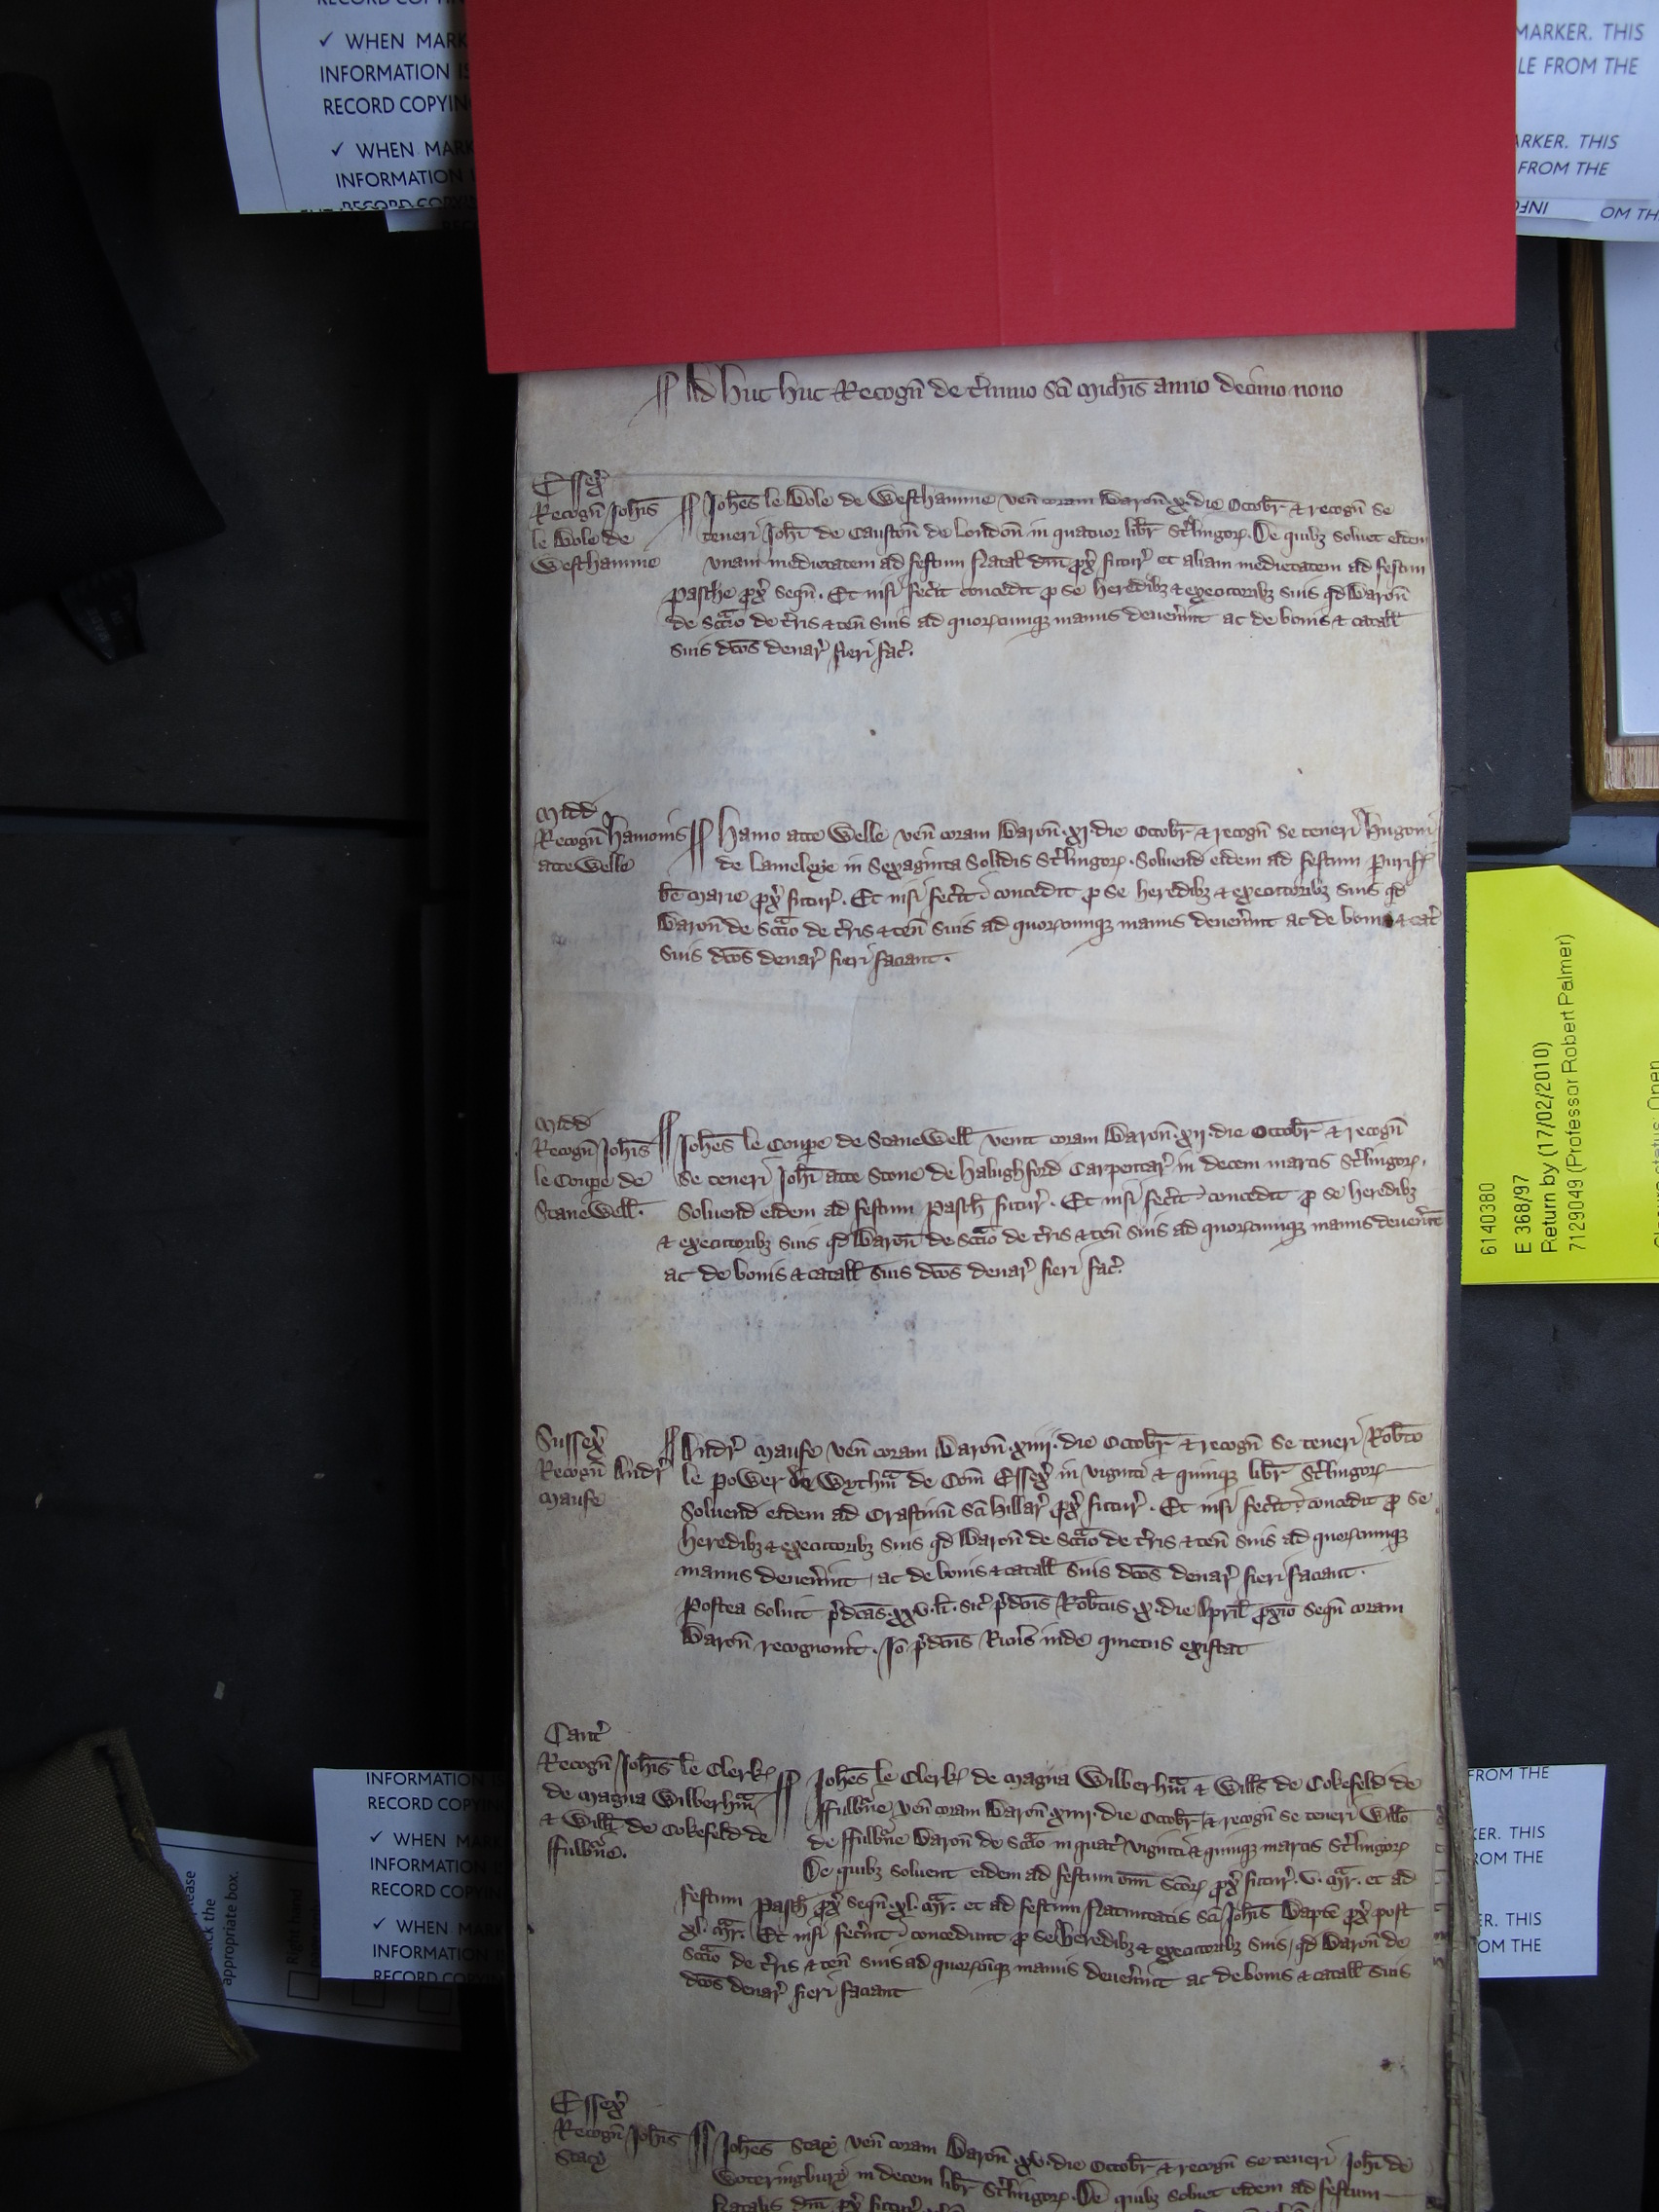 RECORD COPYIN
✓ WHEN MARK
INFORMATION IS
RECORD COPYIN
✓ WHEN MARK
INFORMATION I
MARKER. THIS
LE FROM THE
ARKER. THIS
FROM THE
OM TH
Ad huc huc Recogn̄ de t̓mino Sc̄i Mich̄is anno decimo nono
Essex̓
Recogn̄ Joh̄is
le Bole de
Westhamme
Joh̄es le Bole de Westhamme ven̄ coram Baron̄ .x. die Octobr̄ & recogn̄ se
teneri Joh̄i de Caustōn de Londōn in quatuor libr̄ St̓lingoꝝ. De quibꝫ soluet eidem
vnam medietatem ad festum Natal̄ dn̄i px̓ futur̓ et aliam medietatem ad festum
Pasche px̓ sequn̄. Et nisi fec̓it concedit ꝑ se heredibꝫ & executoribꝫ suis qd̄ Baron̄
de Sccc̄io de t̓ris & ten̄ suis ad quoꝝcumqꝫ manus deuen̓int ac de bonis & catall̄
suis dc̄os denar̓ fieri fac̓.
Midd
Recogn̄ Hamonis
atte Welle
Hamo atte Welle ven̄ coram Baron̄ .xj. die Octobr̄ & recogn̄ se teneri Hugoni
de Lameleye in Sexaginta Solidis St̓lingoꝝ. Soluend eidem ad festum Purif̄
bē Marie px̓ futur̓. Et nisi fec̓it concedit ꝑ se heredibꝫ & executoribꝫ suis qd̄
Baron̄ de Sccc̄io de t̓ris & ten̄ suis ad quoꝝcumqꝫ manus deuen̓int ac de bonis & cat̓
suis dc̄os denar̓ fieri faciant.
Midd
Recogn̄ Joh̄is
le Coupe de
Stanewell̄.
Joh̄es le Coupe de Stanewell̄ venit coram Baron̄ .xij. die Octobr̄ & recogn̄
se teneri Joh̄i atte Stone de Halughford Carpentar̓ in decem marcis St̓lingoꝝ.
Soluend eidem ad festum Pasch̄ futur̓. Et nisi fec̓it concedit ꝑ se heredibꝫ
& executoribꝫ suis qd̄ Baron̄ de Sccc̄io de t̓ris & ten̄ suis ad quoꝝcumqꝫ manus deuen̓int
ac de bonis & catall̄ suis dc̄os denar̓ fieri fac̓.
Sussex̓
Recogn̄ Andr̓
Maufe
Andr̓ Maufe ven̄ coram Baron̄ .xiiij. die Octobr̄ & recogn̄ se teneri Rob̄to
le Power de Wythm̄ de Com̄ Essex̓ in viginti & quinqꝫ libr̄ St̓lingoꝝ
Soluend eidem ad Crastinum Sc̄i Hillar̓ px̓ futur̓. Et nisi fec̓it concedit ꝑ se
heredibꝫ & executoribꝫ suis qd̄ Baron̄ de Sccc̄io de t̓ris & ten̄ suis ad quoꝝcumqꝫ
manus deuen̓int, ac de bonis & catall̄ suis dc̄os denar̓ fieri faciant.
Postea soluit p̓dc̄as .xxv. li. sic̓ p̓dc̄us Rob̄tus .x. die April̄ px̄io sequn̄ coram
Baron̄ recognouit. Jo p̓dc̄us Ric̄us inde quietus existat
Cant̓
Recogn̄ Joh̄is le Clerk
de Magna Wilberhm̄
& Will̄i de Cokefeld de
ffulb̄ne.
Joh̄es le Clerk de Magna Wilberhm̄ & Will̄s de Cokefeld de
ffulb̄ne ven̄ coram Baron̄ .xiiij. die Octobr̄ & recogn̄ se teneri Will̄o
de ffulb̄ne Baron̄ de Sccc̄io in quat̓ viginti & quinqꝫ marcis St̓lingoꝝ
De quibꝫ soluent eidem ad festum om̄n Sc̄oꝝ px̓ futur̓ .v. m̄r. et ad
festum Pasch̄ px̓ sequn̄ .xl. m̄r. et ad festum Natiuitatis Sc̄i Joh̄is Bapt̄e px̓ post
xl. m̄r. Et nisi fec̓int concedunt ꝑ se heredibꝫ & executoribꝫ suis, qd̄ Baron̄ de
Sccc̄io de t̓ris & ten̄ suis ad quoꝝcumqꝫ manus deuen̓int ac de bonis & catall̄ suis
dc̄os denar̓ fieri faciant
Essex̓
Recogn̄ Joh̄is
Stacy
Joh̄es Stacy ven̄ coram Baron̄ .xv. die Octobr̄ & recogn̄ se teneri Joh̄i de
Woteringbury in decem libr̄ St̓lingoꝝ. De quibꝫ soluet eidem ad festum
Natalis dn̄i px̓ futur̓
6140380
E 368/97
Return by (17/02/2010)
7129049 (Professor Robert Palmer)
INFORMATION IS
RECORD COPYIN
✓ WHEN MARK
INFORMATION
RECORD COPYIN
✓ WHEN MARK
INFORMATION
RECORD COPYIN
FROM THE
KER. THIS
ROM THE
ER. THIS
OM THE
ck the
appropriate box.
Right hand